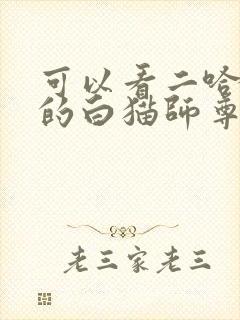 可以看二哈
的白猫師尊
老三家老三